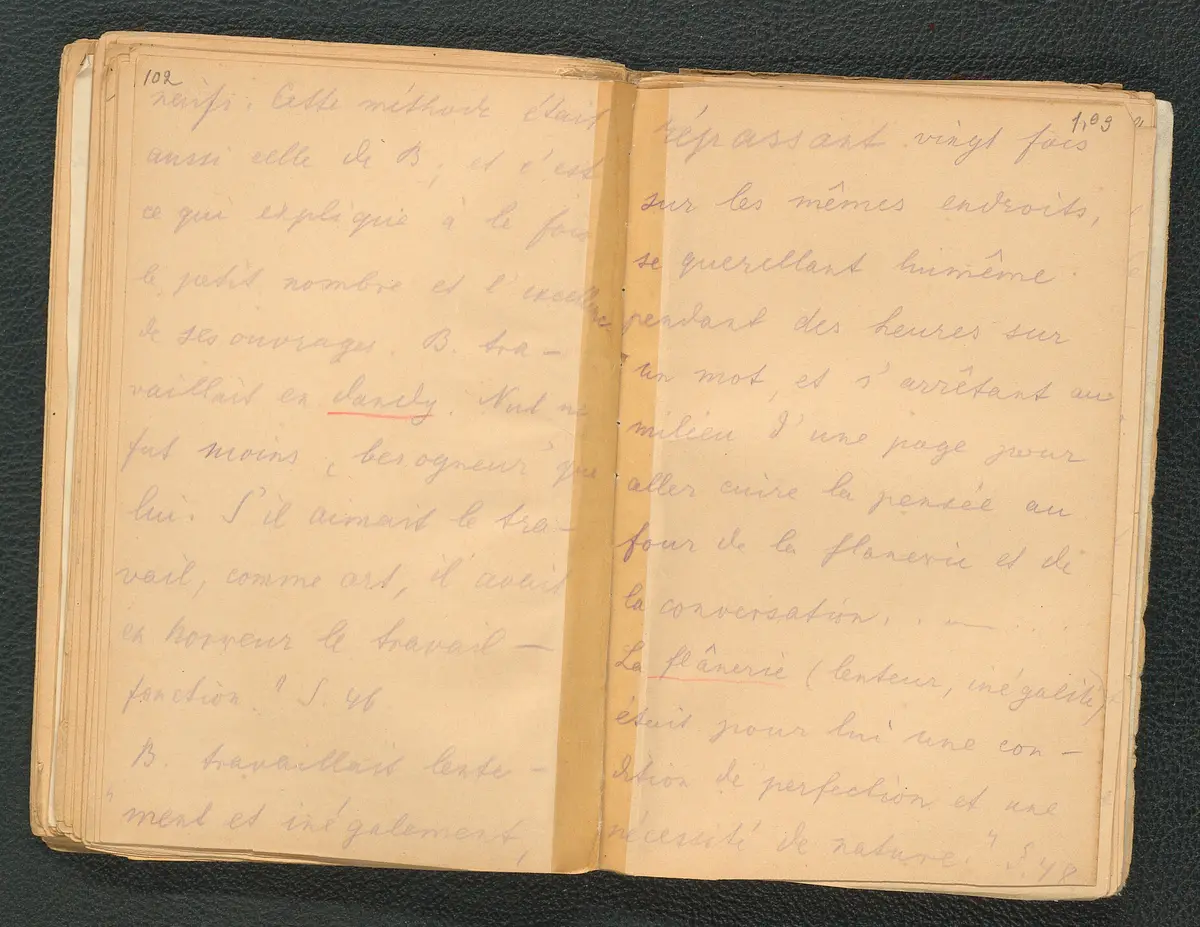 102
naïfs. Cette méthode était
aussi celle de B, et c'est
ce qui explique à la fois
le petit nombre et l'excellence
de ses ouvrages. B. tra-
vaillait en dandy. Nul ne
fut moins "besogneur" que
lui. S'il aimait le tra-
vail, comme art, il avait
en horreur le travail-
fonction." S. 46
B. travaillait lente-
"ment et inégalement,
103
répassant vingt fois
sur les mêmes endroits,
se querellant luimême
pendant des heures sur
un mot, et s'arrêtant au
milieu d'une page pour
aller cuire la pensée au
four de la flanerie et de
la conversation. . — . . .
La flânerie (lenteur, inégalité)
était pour lui une con-
dition de perfection et une
nécessité de nature." S. 48